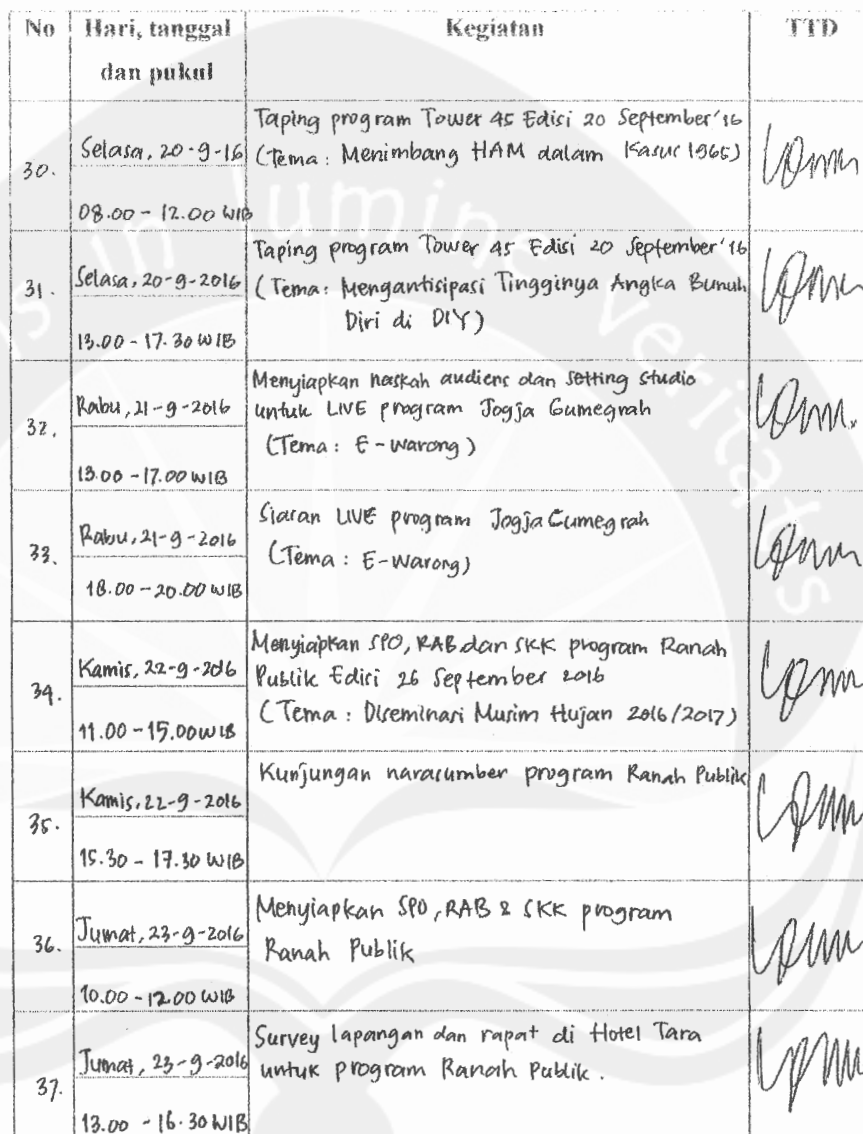 No Hari, tanggal dan pukul Kegiatan TTD
30. Selasa, 20-9-16
08.00 - 12.00 WIB
Taping program Tower 45 Edisi 20 September'16
(Tema: Menimbang HAM dalam Kasus 1965)
31. Selasa, 20-9-2016
13.00 - 17.30 WIB
Taping program Tower 45 Edisi 20 September'16
(Tema: Mengantisipasi Tingginya Angka Bunuh
Diri di DIY)
32. Rabu, 21-9-2016
13.00 - 17.00 WIB
Menyiapkan naskah audiens dan setting studio
untuk LIVE program Jogja Gumegrah
(Tema: E-warong)
33. Rabu, 21-9-2016
18.00 - 20.00 WIB
Siaran LIVE program Jogja Gumegrah
(Tema: E-warong)
34. Kamis, 22-9-2016
11.00 - 15.00 WIB
Menyiapkan SPO, RAB dan SKK program Ranah
Publik Edisi 26 September 2016
(Tema: Diseminasi Musim Hujan 2016/2017)
35. Kamis, 22-9-2016
15.30 - 17.30 WIB
Kunjungan narasumber program Ranah Publik
36. Jumat, 23-9-2016
10.00 - 12.00 WIB
Menyiapkan SPO, RAB & SKK program
Ranah Publik
37. Jumat, 23-9-2016
13.00 - 16.30 WIB
Survey lapangan dan rapat di Hotel Tara
untuk program Ranah Publik.
in lumine veritatis